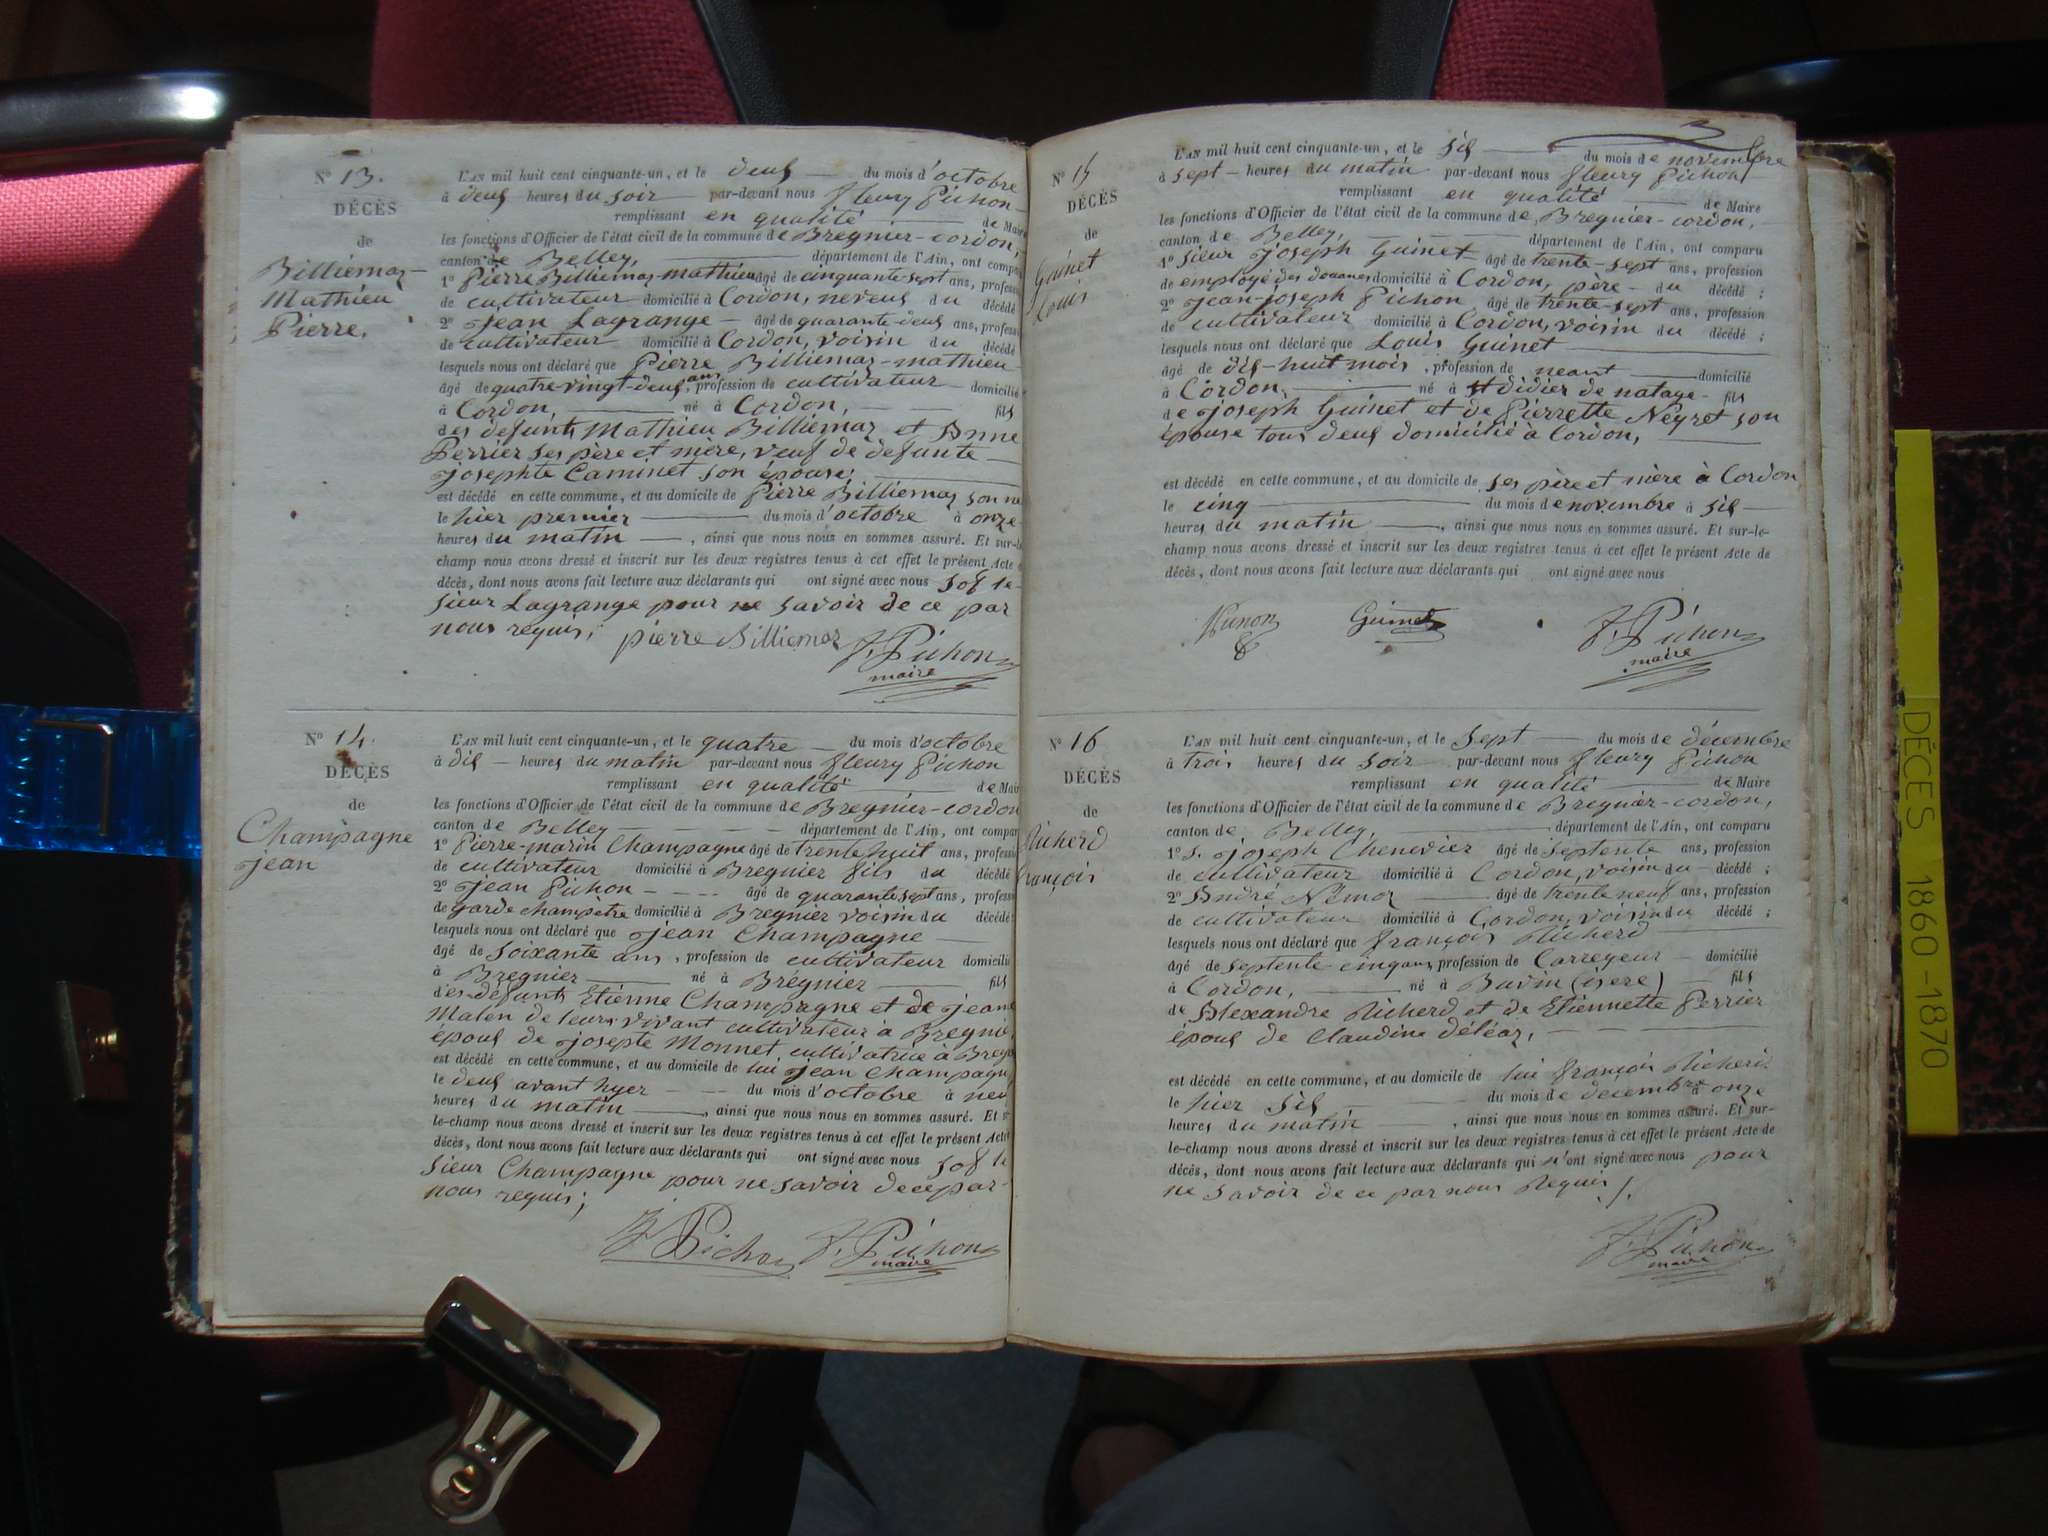 N° 13.
DÉCÈS
de
Billiemaz
Mathieu
Pierre.
L'AN mil huit cent cinquante-un, et le deux du mois d'octobre
à deux heures du soir par-devant nous fleury Pichon
remplissant en qualité de Maire
les fonctions d'Officier de l'état civil de la commune de Bregnier-cordon,
canton de Belley, département de l'Ain, ont compa
1° Pierre Billiemaz-mathieu âgé de cinquante-sept ans, profess
de cultivateur domicilié à Cordon, neveux du décédé
2° Jean Lagrange âgé de quarante-deux ans, profess
de cultivateur domicilié à Cordon, voisin du décédé
lesquels nous ont déclaré que Pierre Billiemaz-mathieu
âgé de quatre vingt-deux ans, profession de cultivateur domicilié
à Cordon, né à Cordon, fils
des defunts Mathieu Billiemaz et Anne
Perrier ses père et mère, veuf de defunte
Josephte Caminet son épouse;
est décédé en cette commune, et au domicile de Pierre Billiemaz son ne
le hier premier du mois d'octobre à onze
heures du matin, ainsi que nous nous en sommes assuré. Et sur-le
champ nous avons dressé et inscrit sur les deux registres tenus à cet effet le présent Acte
décès, dont nous avons fait lecture aux déclarants qui ont signé avec nous sof le
sieur Lagrange pour ne savoir de ce par
nous requis;
pierre Billiemaz F. Pichon
maire
N° 14.
DÉCÈS
de
Champagne
Jean
L'AN mil huit cent cinquante-un, et le quatre du mois d'octobre
à dix heures du matin par-devant nous fleury Pichon
remplissant en qualité de Mair
les fonctions d'Officier de l'état civil de la commune de Bregnier-cordon
canton de Belley département de l'Ain, ont compar
1° Pierre-marin Champagne âgé de trente huit ans, professi
de cultivateur domicilié à Bregnier fils du décédé
2° Jean Pichon âgé de quarante sept ans, profess
de garde champetre domicilié à Bregnier voisin du décédé
lesquels nous ont déclaré que Jean Champagne
âgé de soixante ans, profession de cultivateur domicilié
à Bregnier né à Brégnier fils
des défunts Etienne Champagne et de jeane
de leurs vivant cultivateur a Bregnie
époux de Josepte Monnet, cultivatrice à Breg
est décédé en cette commune, et au domicile de lui Jean Champagn
le deux avant hyer du mois d'octobre à neu
heures du matin, ainsi que nous nous en sommes assuré. Et s
le-champ nous avons dressé et inscrit sur les deux registres tenus à cet effet le présent Acte
décès, dont nous avons fait lecture aux déclarants qui ont signé avec nous sof le
sieur Champagne pour ne savoir de ce par
nous requis;
Pichon F. Pichon
maire
N° 15
DÉCÈS
de
Guinet
Louis
L'AN mil huit cent cinquante-un, et le six du mois de novembre
à sept heures du matin par-devant nous fleury Pichon
remplissant en qualité de Maire
les fonctions d'Officier de l'état civil de la commune de Bregnier-cordon,
canton de Belley, département de l'Ain, ont comparu
1° sieur Joseph Guinet âgé de trente-sept ans, profession
de employé des douanes domicilié à Cordon, père du décédé;
2° Jean-Joseph Pichon âgé de trente-sept ans, profession
de cultivateur domicilié à Cordon, voisin du décédé;
lesquels nous ont déclaré que Louis Guinet
âgé de dix-huit mois, profession de neant domicilié
à Cordon, né à St didier de natage fils
de Joseph Guinet et de Pierrette Neyret son
épouse tous deux domicilié à Cordon,
est décédé en cette commune, et au domicile de ses père et mère à Cordon
le cinq du mois de novembre à six
heures du matin, ainsi que nous nous en sommes assuré. Et sur-le-
champ nous avons dressé et inscrit sur les deux registres tenus à cet effet le présent Acte de
décès, dont nous avons fait lecture aux déclarants qui ont signé avec nous
Guinet F. Pichon
maire
N° 16
DÉCÈS
de
Richerd
françois
L'AN mil huit cent cinquante-un, et le sept du mois de décembre
à trois heures du soir par-devant nous fleury Pichon
remplissant en qualité de Maire
les fonctions d'Officier de l'état civil de la commune de Bregnier-cordon,
canton de Belley, département de l'Ain, ont comparu
1° s. Joseph Chenevier âgé de septente ans, profession
de cultivateur domicilié à Cordon, voisin du décédé;
2° André Némoz âgé de trente neuf ans, profession
de cultivateur domicilié à Cordon, voisin du décédé;
lesquels nous ont déclaré que françois Richerd
âgé de septente cinq ans, profession de Carregeur domicilié
à Cordon, né à Buvin (isere) fils
de Alexandre Richerd et de Etiennette Perrier
époux de Claudine déléaz,
est décédé en cette commune, et au domicile de lui françois Richerd
le hier six du mois de decembre à onze
heures du matin, ainsi que nous nous en sommes assuré. Et sur-
le-champ nous avons dressé et inscrit sur les deux registres tenus à cet effet le présent Acte de
décès, dont nous avons fait lecture aux déclarants qui n'ont signé avec nous pour
ne savoir de ce par nous Requis /.
F. Pichon
maire
DÉCÈS 1860-1870